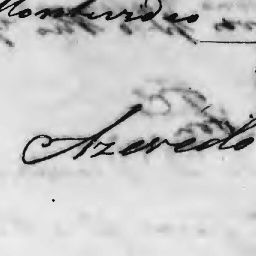 Montevideo
Azevedo